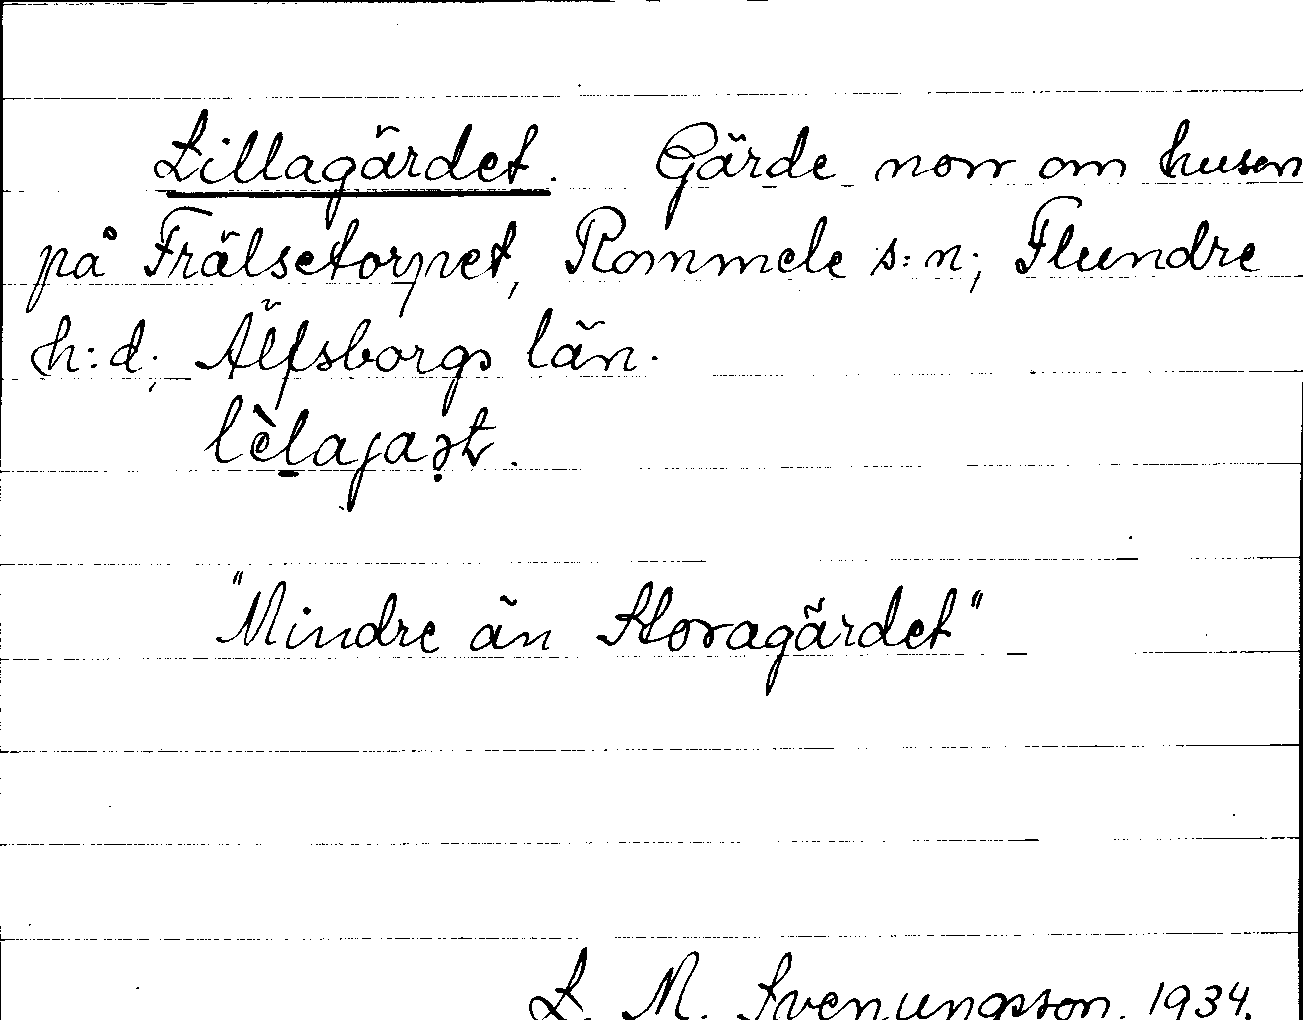 Lillagärdet. Gärde norr om husen
på Frälsetorpet, Rommele s:n; Flundre
h:d; Älfsborgs län.
lèla̱jaə̣t.
"Mindre än Storagärdet"
L. M. Svenungsson. 1934.